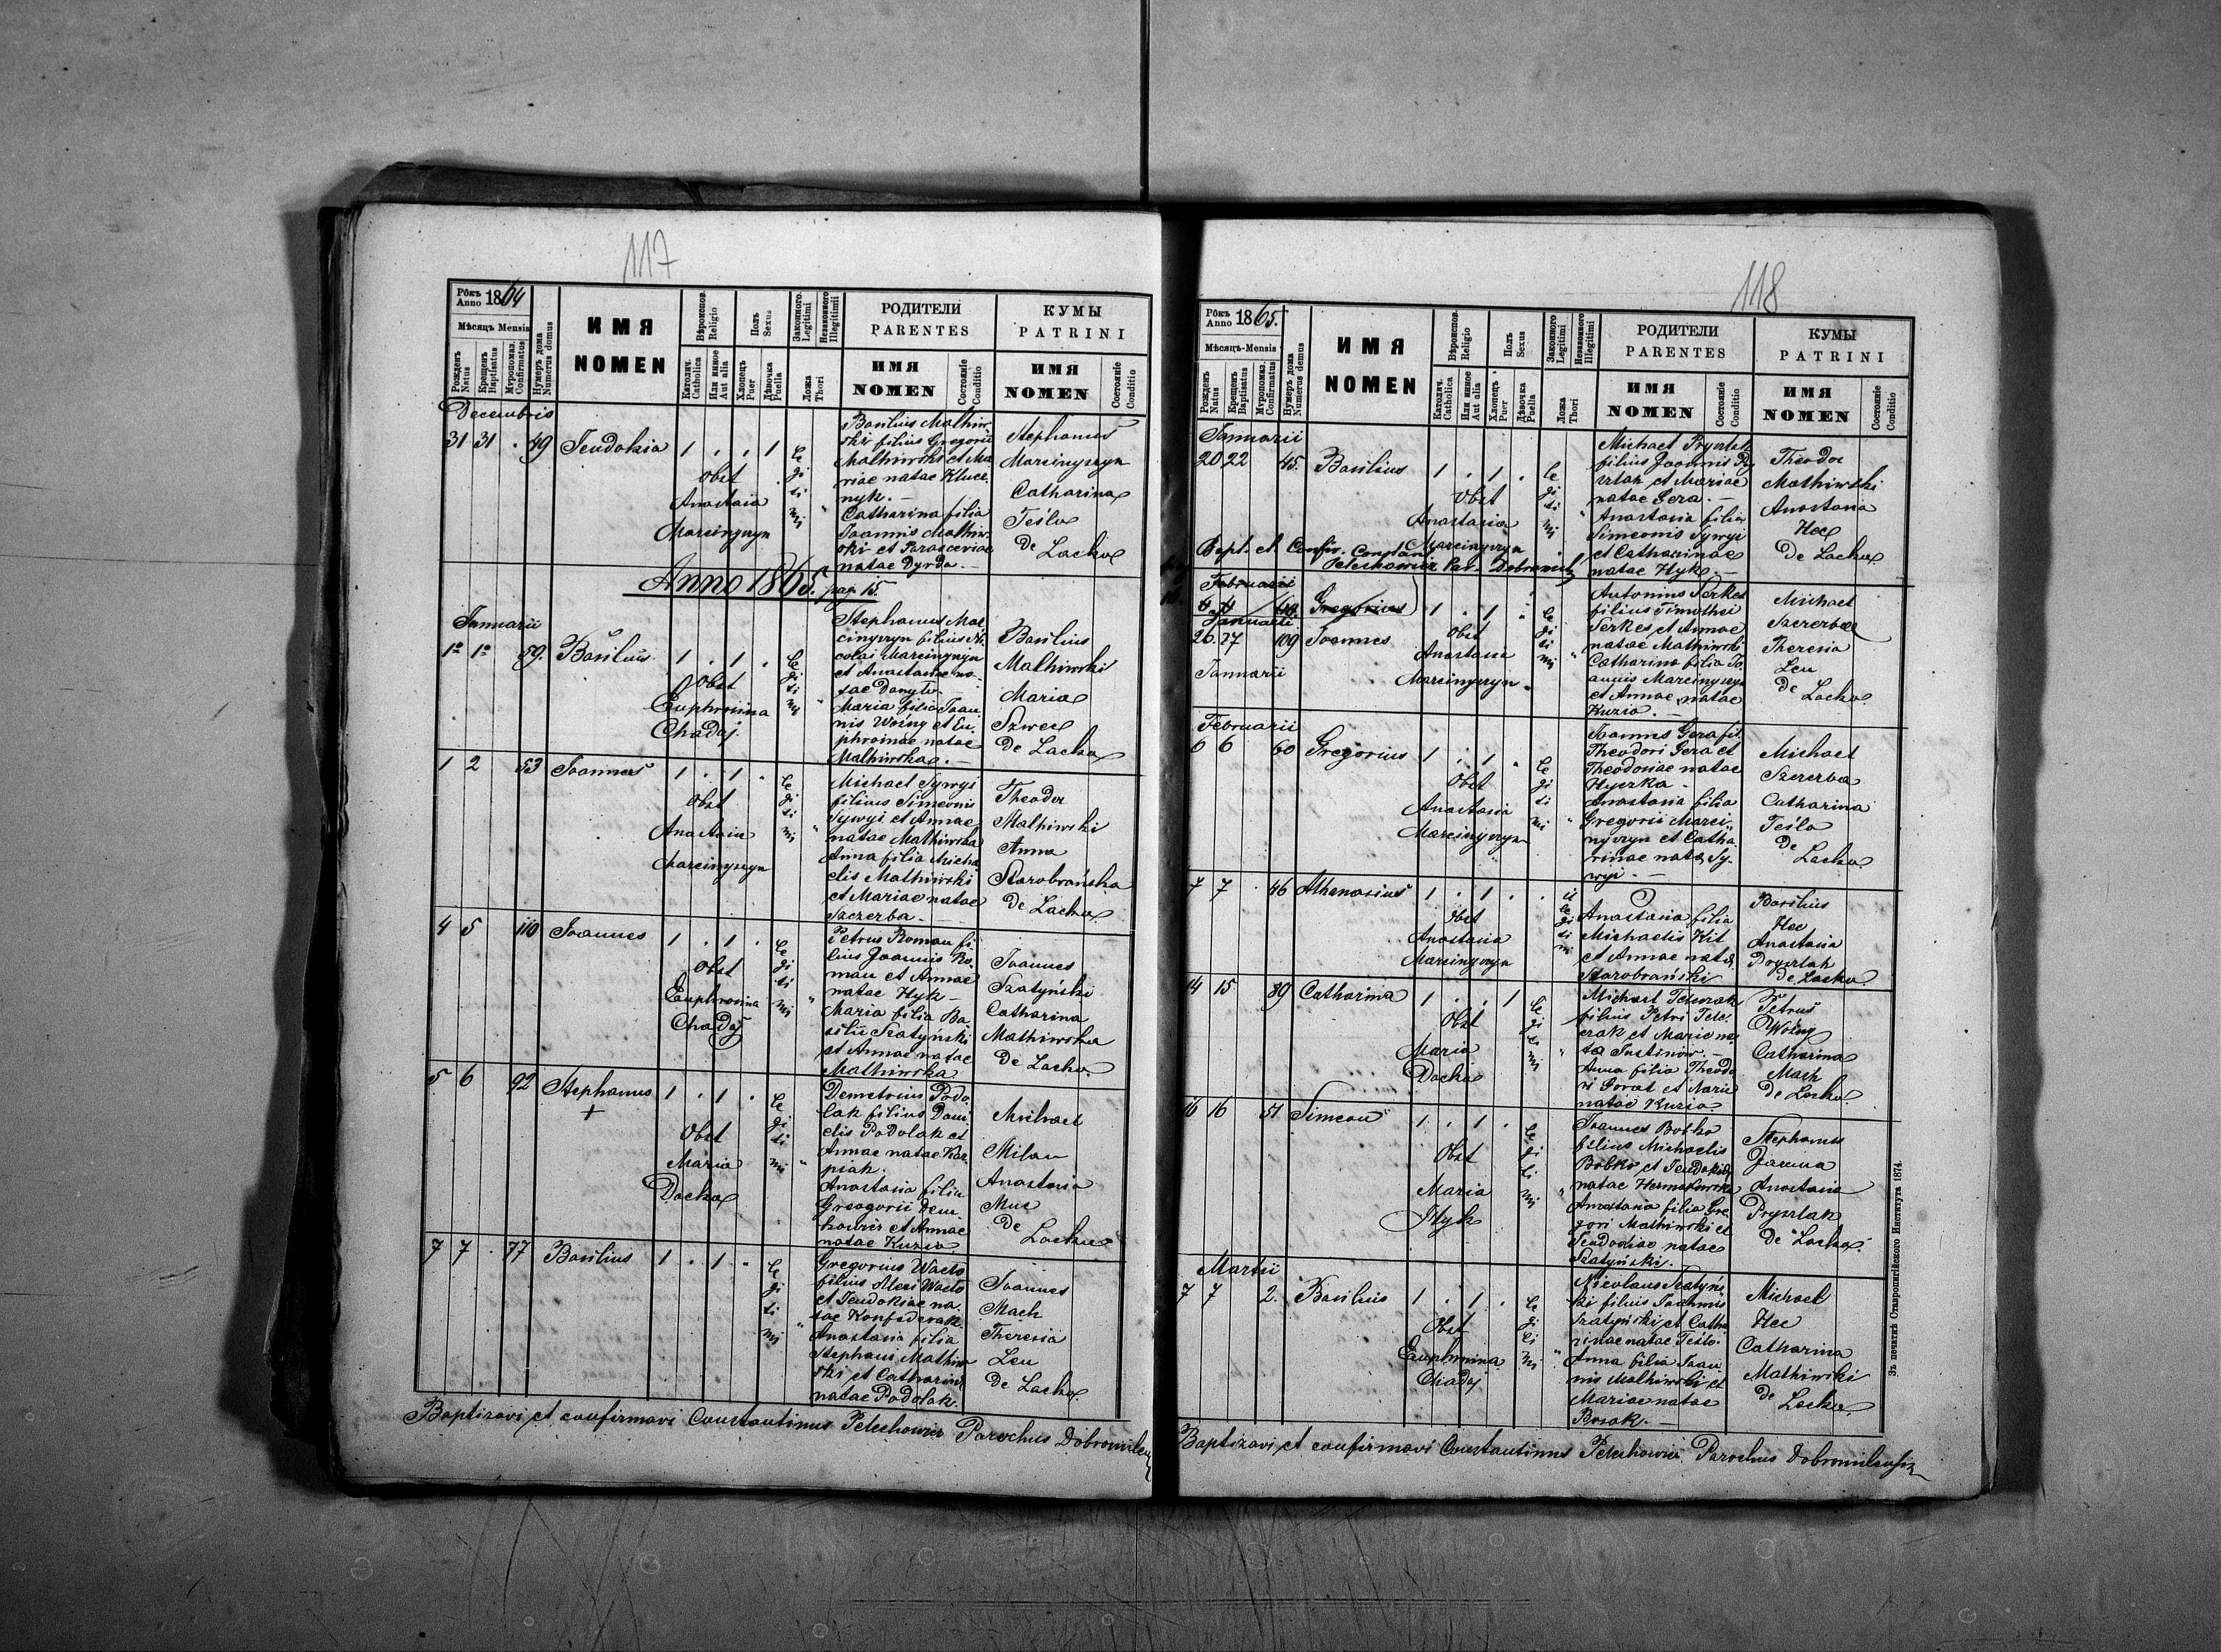 117
Рôкъ Anno 1864
Мѣсяцъ Mensis
Рожденъ Natus
Крещенъ Baptisatus
Мѵропомаз. Confirmatus
Нумеръ дома Numerus domus
ИМЯ
NOMEN
Вѣроиспов. Religio
Католич. Catholica
Или инное Aut alia
Полъ Sexus
Хлопецъ Puer
Дѣвочка Puella
Законного Legitimi
Незаконного Illegitimi
Ложа Thori
РОДИТЕЛИ
PARENTES
ИМЯ
NOMEN
Состояніе Conditio
КУМЫ
PATRINI
ИМЯ
NOMEN
Состояніе Conditio
Decembris
31 31 . 49 Teudokia 1 . . 1 legitimi
Obst
Anastasia
Marcinyszyn
Basilius Mathiw-
ski filius Gregorii
Mathiwski et Ma
riae natae Klucz-
nyk. —
Catharina filia
Joannis Mathiw-
ski et Parasceviae
natae Dyrda. —
Stephanus
Marcinyszyn
Catharina
Teśla
De Lacko
Anno 1865. pag. 15.
Januarii
1º 1º 59. Basilius 1 . 1 . legitimi
Obst
Euphrosina
Chadaj
Stephanus Mar
cinyszyn filius Ni
colai Marcinyszyn
et Anastasiae na-
tae Danyło
Maria filia Joan
nis Woźny et Eu
phrosinae natae
Mathiwska. —
Basilius
Mathiwski
Maria
Szwec
De Lacko
1 2 53 Joannes 1 . 1 . legitimi
Obst
Anastasia
Marcinyszyn
Michael Sywyj
filius Simeonis
Sywyj et Annae
natae Mathiwska
Anna filia Micha
elis Mathiwski
et Mariae natae
Szczerba. —
Theodor
Mathiwski
Anna
Starobrańska
De Lacko
4 5 110 Joannes 1 . 1 . legitimi
Obst
Euphrosina
Chadaj
Petrus Roman fi
lius Joannis Ro-
man et Annae
natae Hyk —
Maria filia Ba
silii Szatyński
et Annae natae
Mathiwska
Joannes
Szatyński
Catharina
Mathiwska
De Lacko.
5 6 92 Stephanus 1 . 1 . legitimi
+
Obst
Maria
Dacko
Demetrius Podo
lak filius Dani
elis Podolak et
Annae natae Kar
piak.
Anastasia filia
Gregorii Dem
kowicz et Annae
natae Kuzio
Michael
Milan
Anastasia
Muc
De
Lacko
7 7 . 77 Basilius 1 . 1 . legitimi
Gregorius Wacło
filius Alexi Wacło
et Teudokiae na-
tae Konfederak.
Anastasia filia
Stephani Mathiw
ski et Catharinae
natae Podolak.
Joannes
Mach
Theresia
Leu
De Lacko.
Baptizavi et confirmavi Constantinus Petechowicz Parochus Dobromilensis
118
Рôкъ Anno 1865.
Мѣсяцъ-Mensis
Рожденъ Natus
Крещенъ Baptisatus
Мѵропомаз. Confirmatus
Нумеръ дома Numerus domus
ИМЯ
NOMEN
Вѣроиспов. Religio
Католич. Catholica
Или инное Aut alia
Полъ Sexus
Хлопецъ Puer
Дѣвочка Puella
Законного Legitimi
Незаконного Illegitimi
Ложа Thori
РОДИТЕЛИ
PARENTES
ИМЯ
NOMEN
Состояніе Conditio
КУМЫ
PATRINI
ИМЯ
NOMEN
Состояніе Conditio
Januarii
20 22 45. Basilius 1 . 1 . legitimi
Obst
Anastasia
Marcinyszyn
Michael Pryszlak
filius Joannis Pry
szlak et Mariae
natae Gera. —
Anastasia filia
Simeonis Sywyj
et Catharinae
natae Hyk. —
Theodor
Mathiwski
Anastasia
Hec
De Lacko
Bapt. et Confir. Constan. Petechowicz Par. Dobromil
Februarii
4 4 60 Gregorius
Januarii
26. 27 109 Joannes 1 . 1 . legitimi
Januarii
Obst
Anastasia
Marcinyszyn
Antonius Serkes
filius Timothei
Serkes et Annae
natae Mathiwski
Catharina filia Jo
annis Marcinyszyn
et Annae natae
Kuzio. —
Michael
Szczerba
Theresia
Leu
De Lacko.
Februarii
6 6 60 Gregorius 1 . 1 . legitimi
Obst
Anastasia
Marcinyszyn
Joannes Gera fil.
Theodori Gera et
Theodosiae natae
Hyczka —
Anastasia filia
Gregorii Marci-
nyszyn et Catha
rinae natae Sy-
wyj. —
Michael
Szczerba
Catharina
Teśla
De
Lacko
7 7 . 46 Athanasius 1 . 1 . . illegitimi
Obst
Anastasia
Marcinyszyn
Anastasia filia
Michaelis Kit
et Annae natae
Starobrański
Basilius
Hec
Anastasia
Pryszlak
De Lacko
14 15 89 Catharina 1 . . 1 legitimi
Obst
Maria
Dacko
Michael Teterak
filius Petri Tete-
rak et Mariae na
ta Justinów. —
Anna filia Theodo
ri Sorat et Mariae
natae Kuzio.
Petrus
Woźny
Catharina
Mach
De Lacko.
16 16 51 Simeon 1 . 1 . legitimi
Obst
Maria
Hyk
Joannes Bobko
filius Michaelis
Bobko et Teudokiae
natae Hermakowska
Anastasia filia Gre
gori Mathiwski et
Teudosiae natae
Szatyński.
Stephanus
Jarema
Anastasia
Pryszlak
De Lacko.
Martii
7 7 2. Basilius 1 . 1 . legitimi
Obst
Euphrosina
Chadaj
Nicolaus Szatyńs
ki filius Joannis
Szatyński et Catha
rinae natae Teśla
Anna filia Joan
nis Mathiwski et
Mariae natae
Bosak. —
Michael
Hec
Catharina
Mathiwski
De
Lacko.
Baptizavi et confirmavi Constantinus Petechowicz Parochus Dobromilensis
Зъ печатнѣ Ставропигійского Института 1874.